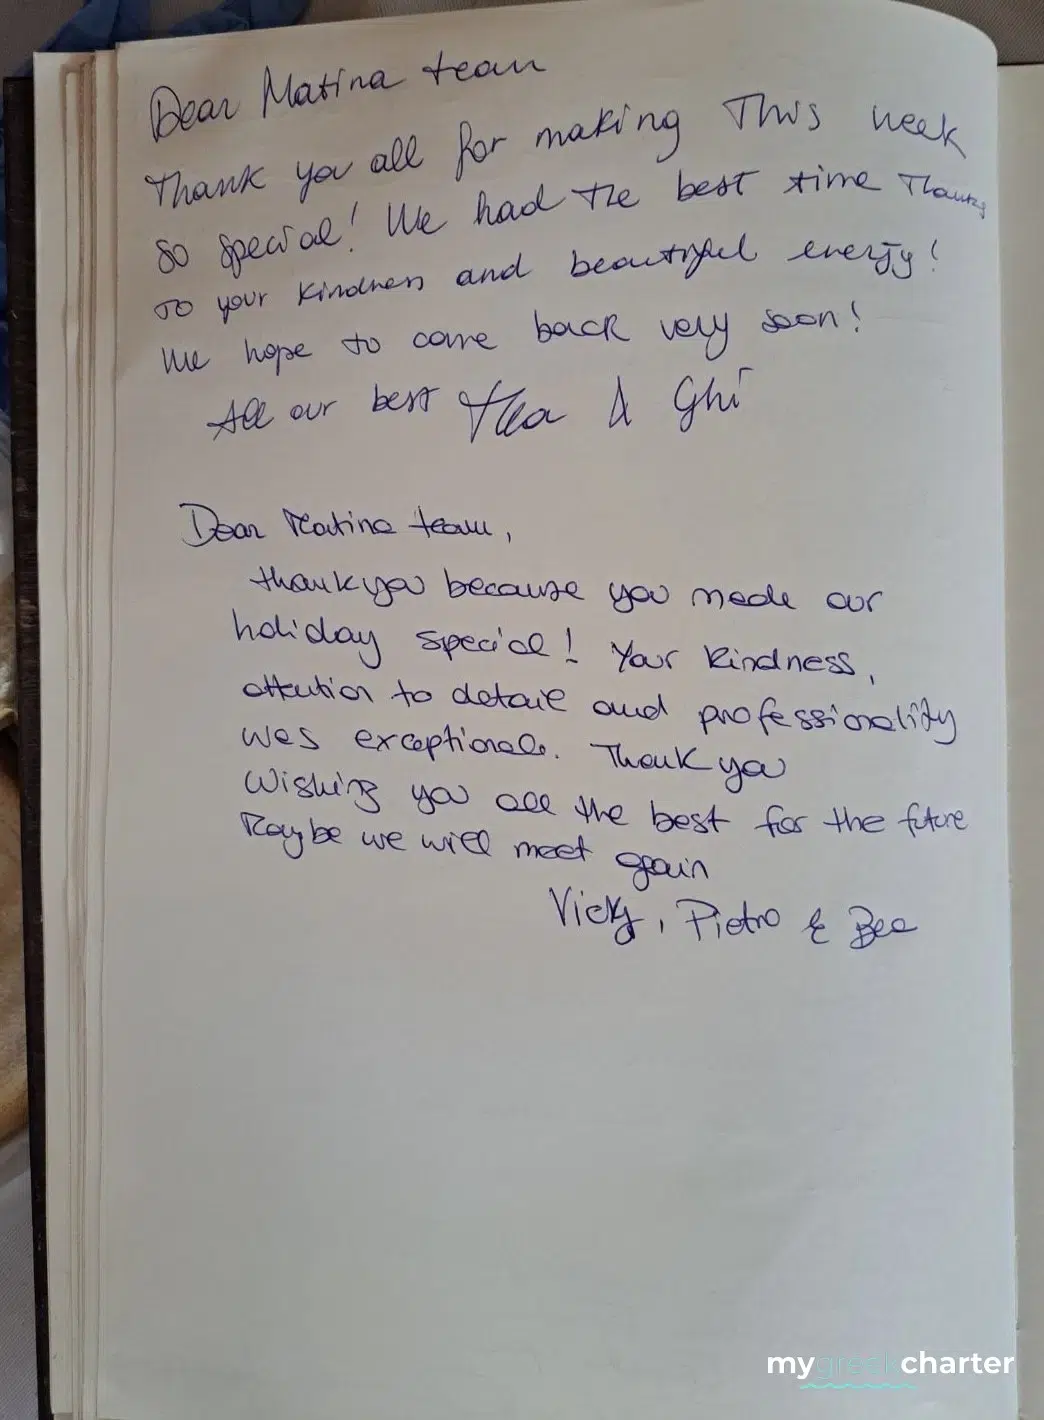 Dear Matina team
Thank you all for making This week
so special! We had the best time Thanks
to your kindness and beautiful energy!
We hope to come back very soon!
All our best & Ghi
Dear Matina team,
thank you because you made our
holiday special! Your kindness,
attention to detail and professionality
was exceptional. Thank you
Wishing you all the best for the future
Maybe we will meet again
Vicky, Pietro & Bea
mygreekcharter